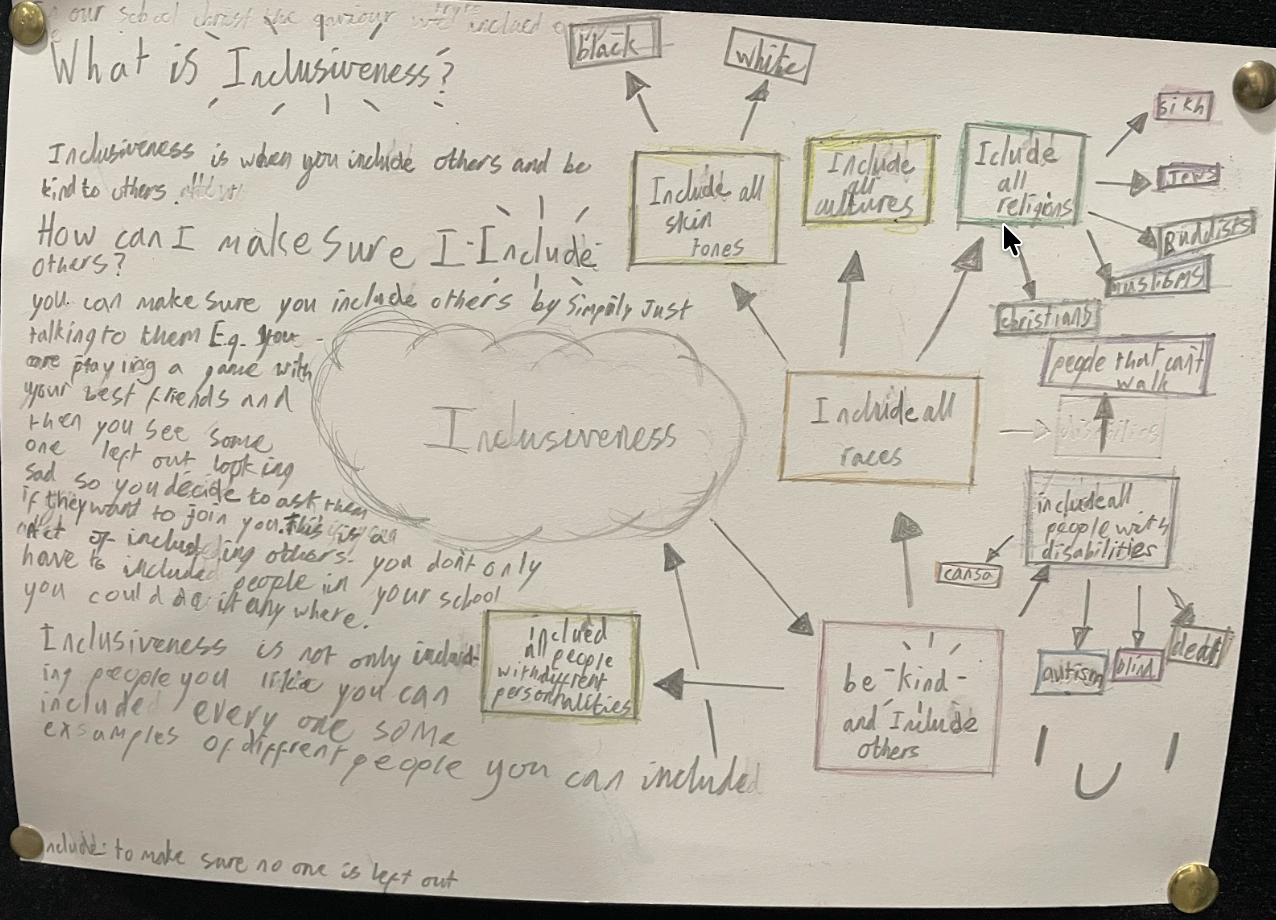 our school christ the
What is Inclusiveness?
Inclusiveness is when you include others and be
kind to others.
How can I make Sure I-Include
others?
you can make sure you include others by Simpily Just
talking to them E.g. you
are playing a game with
your best friends and
then you see some
one left out looking
sad so you decide to ask them
if they want to join you. This is an
act of including others. you don't only
have to included people in your school
you could do it any where.
Inclusiveness is not only includ-
ing people you like you can
included every one some
exsamples of diffrent people you can included
Include: to make sure no one is left out
Inclusiveness
black
white
Include all
skin
tones
Include
all
cultures
Iclude
all
religions
sikh
Jews
Buddists
muslims
christians
Include all
races
people that can't
walk
disabilities
include all
people with
disabilities
autism
blind
deaf
be -kind-
and Include
others
inclued
all people
with diffrent
personalities